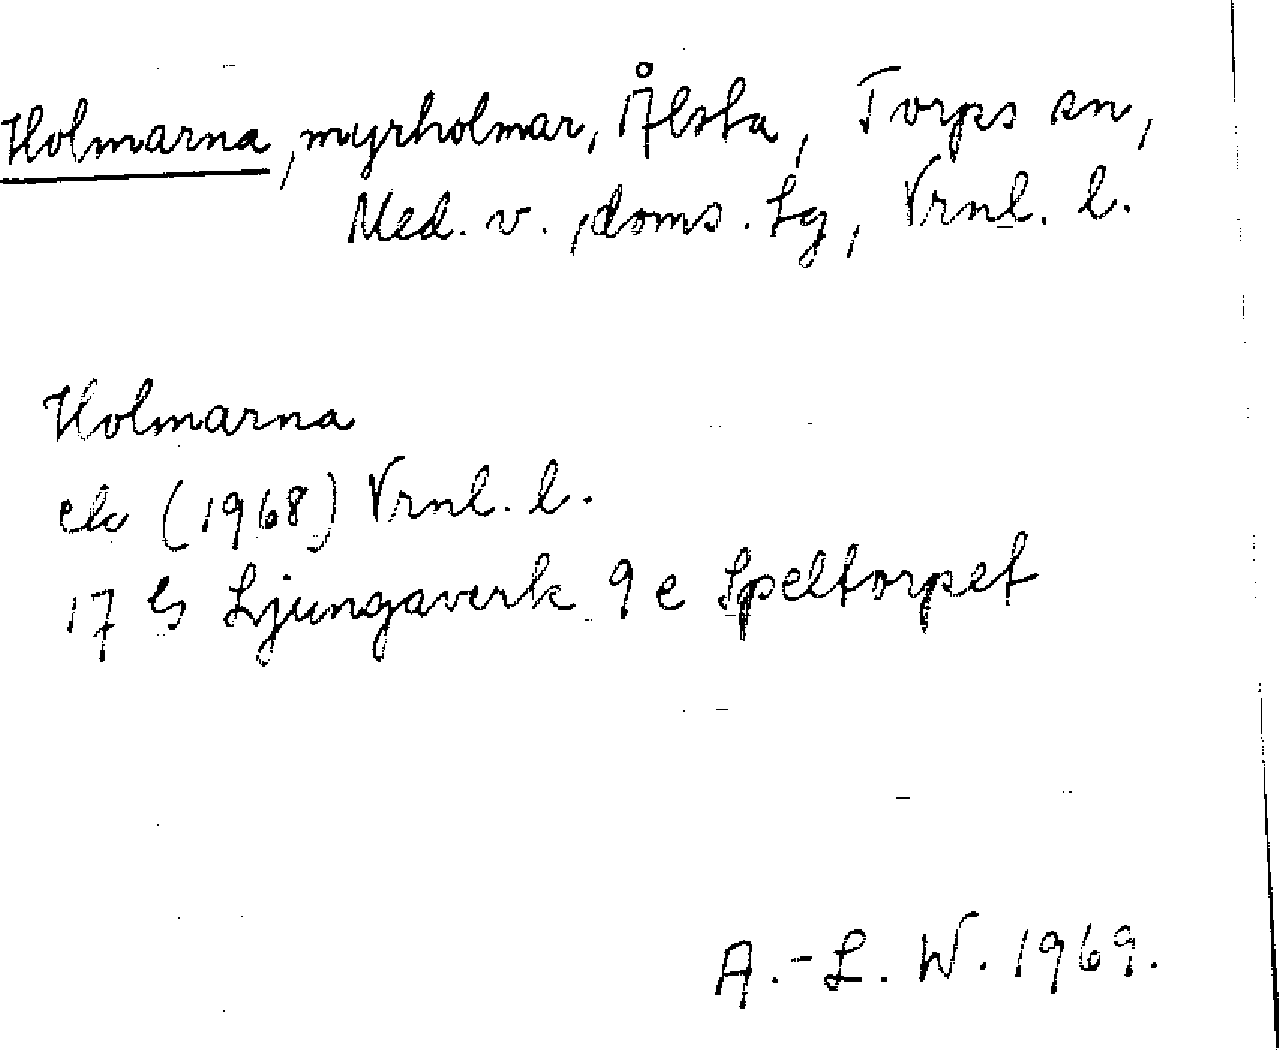 Holmarna, myrholmar, Ålsta, Torps sn,
Med. v., doms. Lg, Vrnl. l.
Holmarna
ek (1968) Vrnl. l.
17 G Ljungaverk 9 e Speltorpet
A.-L. W. 1969.